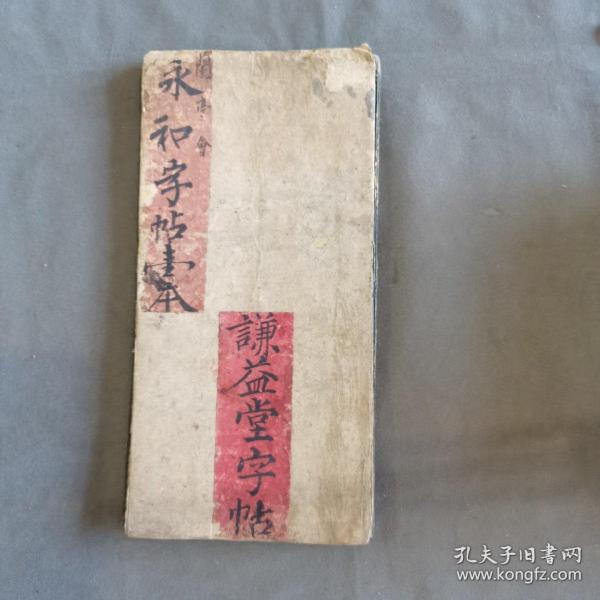 蘭亭會
永和字帖壹本
謙益堂字帖
孔夫子旧书网
www.kongfz.com